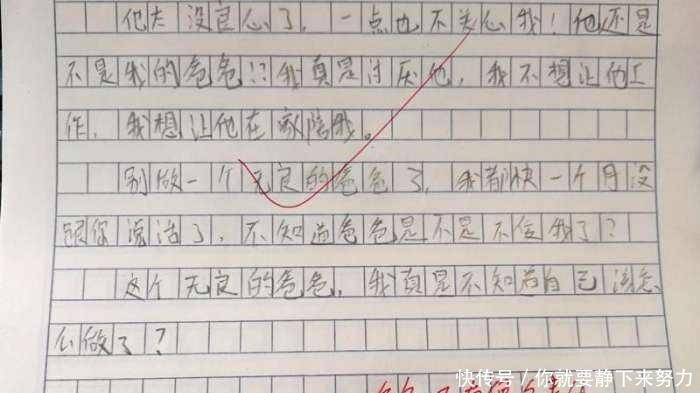 他太没良心了，一点也不关心我！他还是
不是我的爸爸！？我真是讨厌他，我不想让他工
作，我想让他在家陪我。
别做一个无良的爸爸了，我都快一个月没
跟你说话了，不知道爸爸是不是不信我了？
这个无良的爸爸，我真是不知道自己该怎
么做了？
快传号／你就要静下来努力